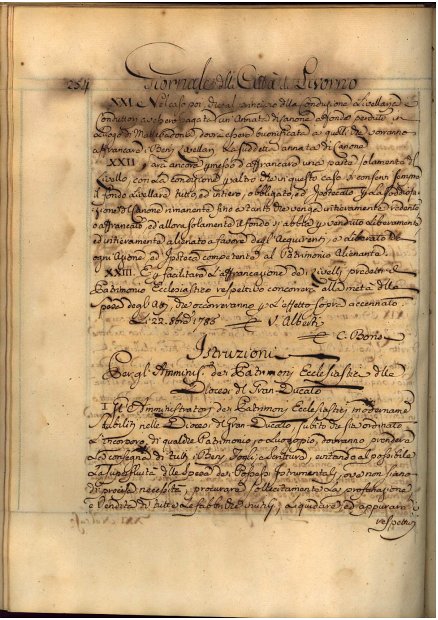 254 Giornale della Città di Livorno
XXI. Nel caso poi che al principio della Conduzione Livellare i
Conduttori avessero pagata un'Annata di Canone a fondo perduto in
Luogo di dovrà essere buonificata a quelli che vorranno
affrancare i Beni Livellari la suddetta annata di Canone
XXII. Sarà ancora permesso di affrancare una parte solamente del
Livello, con la Condizione per altro che in questo caso si conservi sempre
il fondo Livellare tutto, ed intiero, obbligato, ed Ipotecato per la
del Canone rimanente fino a tanto che venga intieramente redento
o affrancato, ed allora solamente il fondo si abbia per venduto liberamente
ed intieramente alienato a favore degli Acquirenti, e liberato da
ogni Azione, ed Ipoteca competente al Patrimonio Alienante.
XXIII. E per facilitare l'affrancazione dei Livelli predetti il
Patrimonio Ecclesiastico respettivo concorrerà alla metà della
spesa degli Atti, che occorreranno per l'effetto sopra accennato.
Li 22. 1785 V. Alberti
C. Bono
Istruzioni
Per gli Amministratori dei Patrimonj Ecclesiastici delle
Diocesi del Gran Ducato
I. Gl'Amministratori dei Patrimonj Ecclesiastici modernamente
stabiliti nelle Diocesi del Gran Ducato, subito che sia ordinato
l'incorporo di qualche Patrimonio, o Luogo pio, dovranno prendere
la consegna di tutti i Beni, Fogli, e Scritture, evitando al possibile
la superfluità della spesa dei Rogiti Istrumentali, ove non siano
di precisa necessità, procurare sollecitamente la profanazione
e Vendita di tutte le fabbriche inutili, liquidare, ed appurare i
respettivi